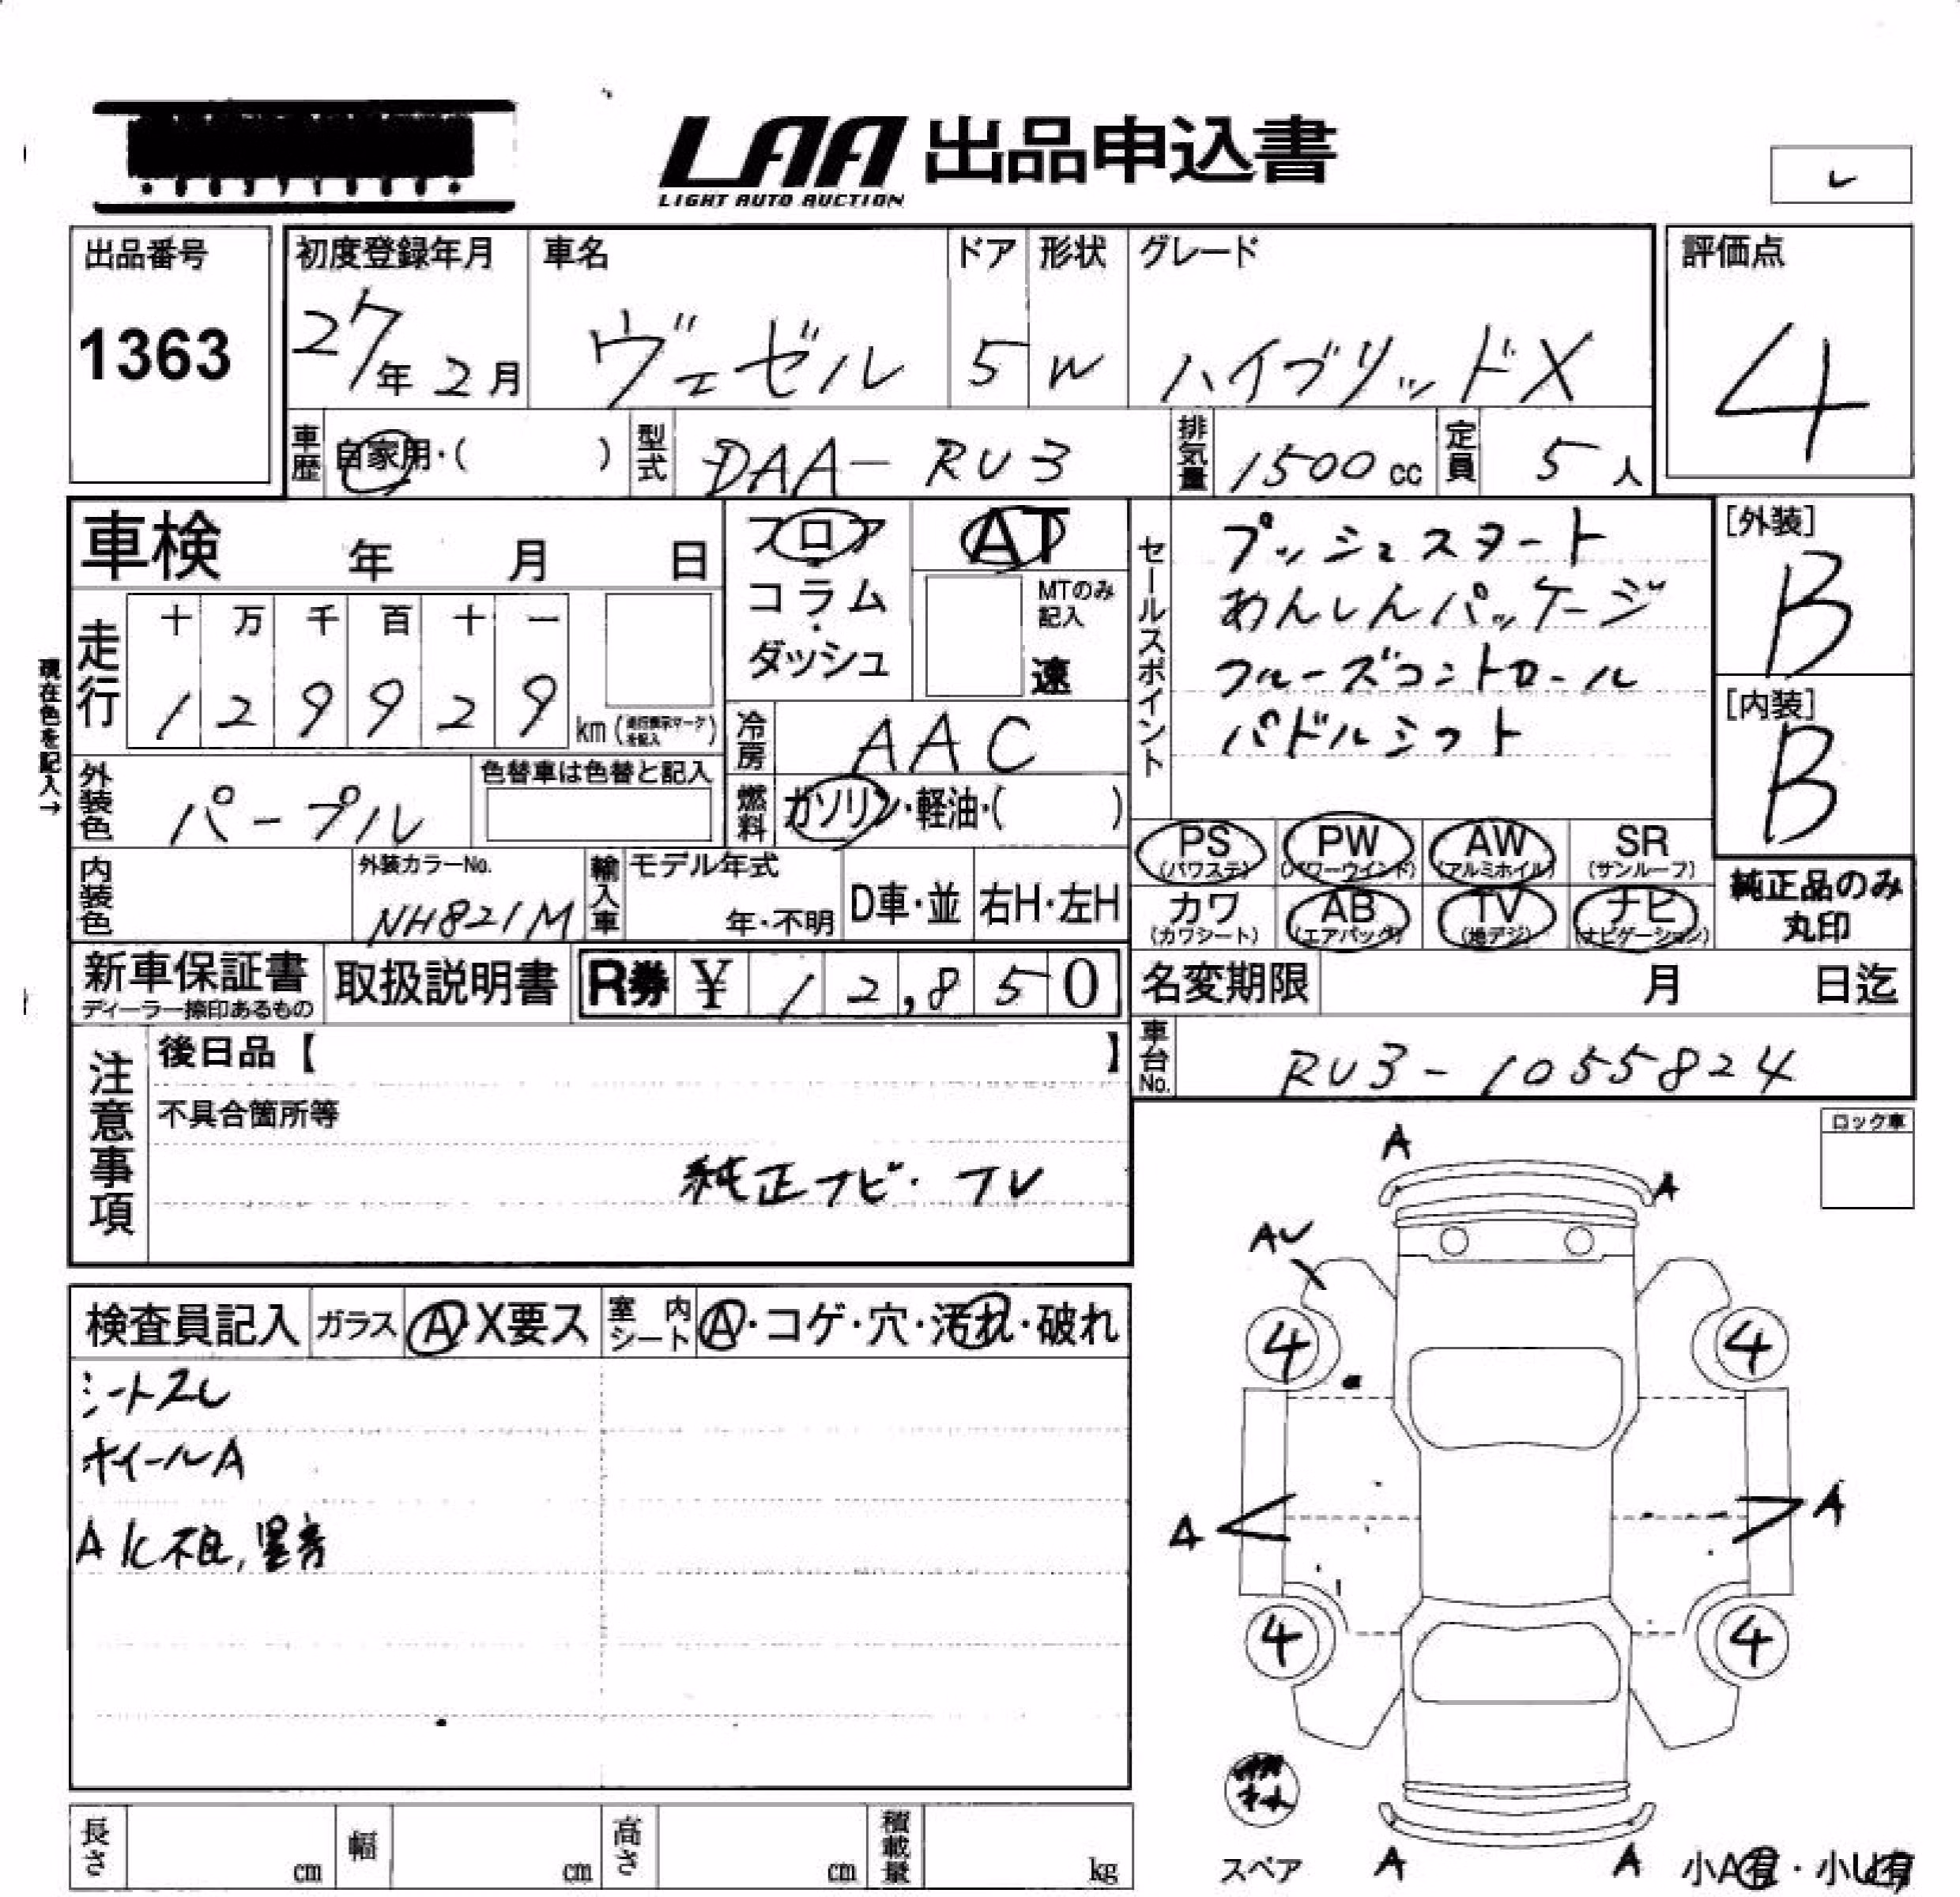 LAA 出品申込書
LIGHT AUTO AUCTION
出品番号
1363
初度登録年月
27年2月
車名
ヴェゼル
ドア
5
形状
W
グレード
ハイブリッドX
評価点
4
車歴
自家用・( )
型式
DAA-RU3
排気量
1500cc
定員
5人
車検 年 月 日
走行
十 万 千 百 十 一
1 2 9 9 2 9 km (走行表示マークを記入)
現在色を記入→
外装色
パープル
色替車は色替と記入
内装色
外装カラーNo.
NH821M
輸入車
モデル年式
年・不明
D車・並
右H・左H
フロア
コラム
・
ダッシュ
AT
MTのみ
記入
速
冷房
AAC
燃料
ガソリン・軽油・( )
セールスポイント
プッシュスタート
あんしんパッケージ
クルーズコントロール
パドルシフト
[外装]
B
[内装]
B
PS
(パワステ)
PW
(パワーウインド)
AW
(アルミホイル)
SR
(サンルーフ)
カワ
(カワシート)
AB
(エアバック)
TV
(地デジ)
ナビ
(ナビゲーション)
純正品のみ
丸印
新車保証書
ディーラー捺印あるもの
取扱説明書
R券 ¥ 12,850
名変期限 月 日迄
車台No.
RU3-1055824
注意事項
後日品【 】
不具合箇所等
純正ナビ・TV
ロック車
検査員記入
ガラス
A・X要ス
室内
シート
A・コゲ・穴・汚れ・破れ
シートスレ
ホイールA
A/C不良,異音
A
A
AU
4
4
A
A
4
4
スペア
A
A
小A有・小U有
長さ cm
幅 cm
高さ cm
積載量 kg